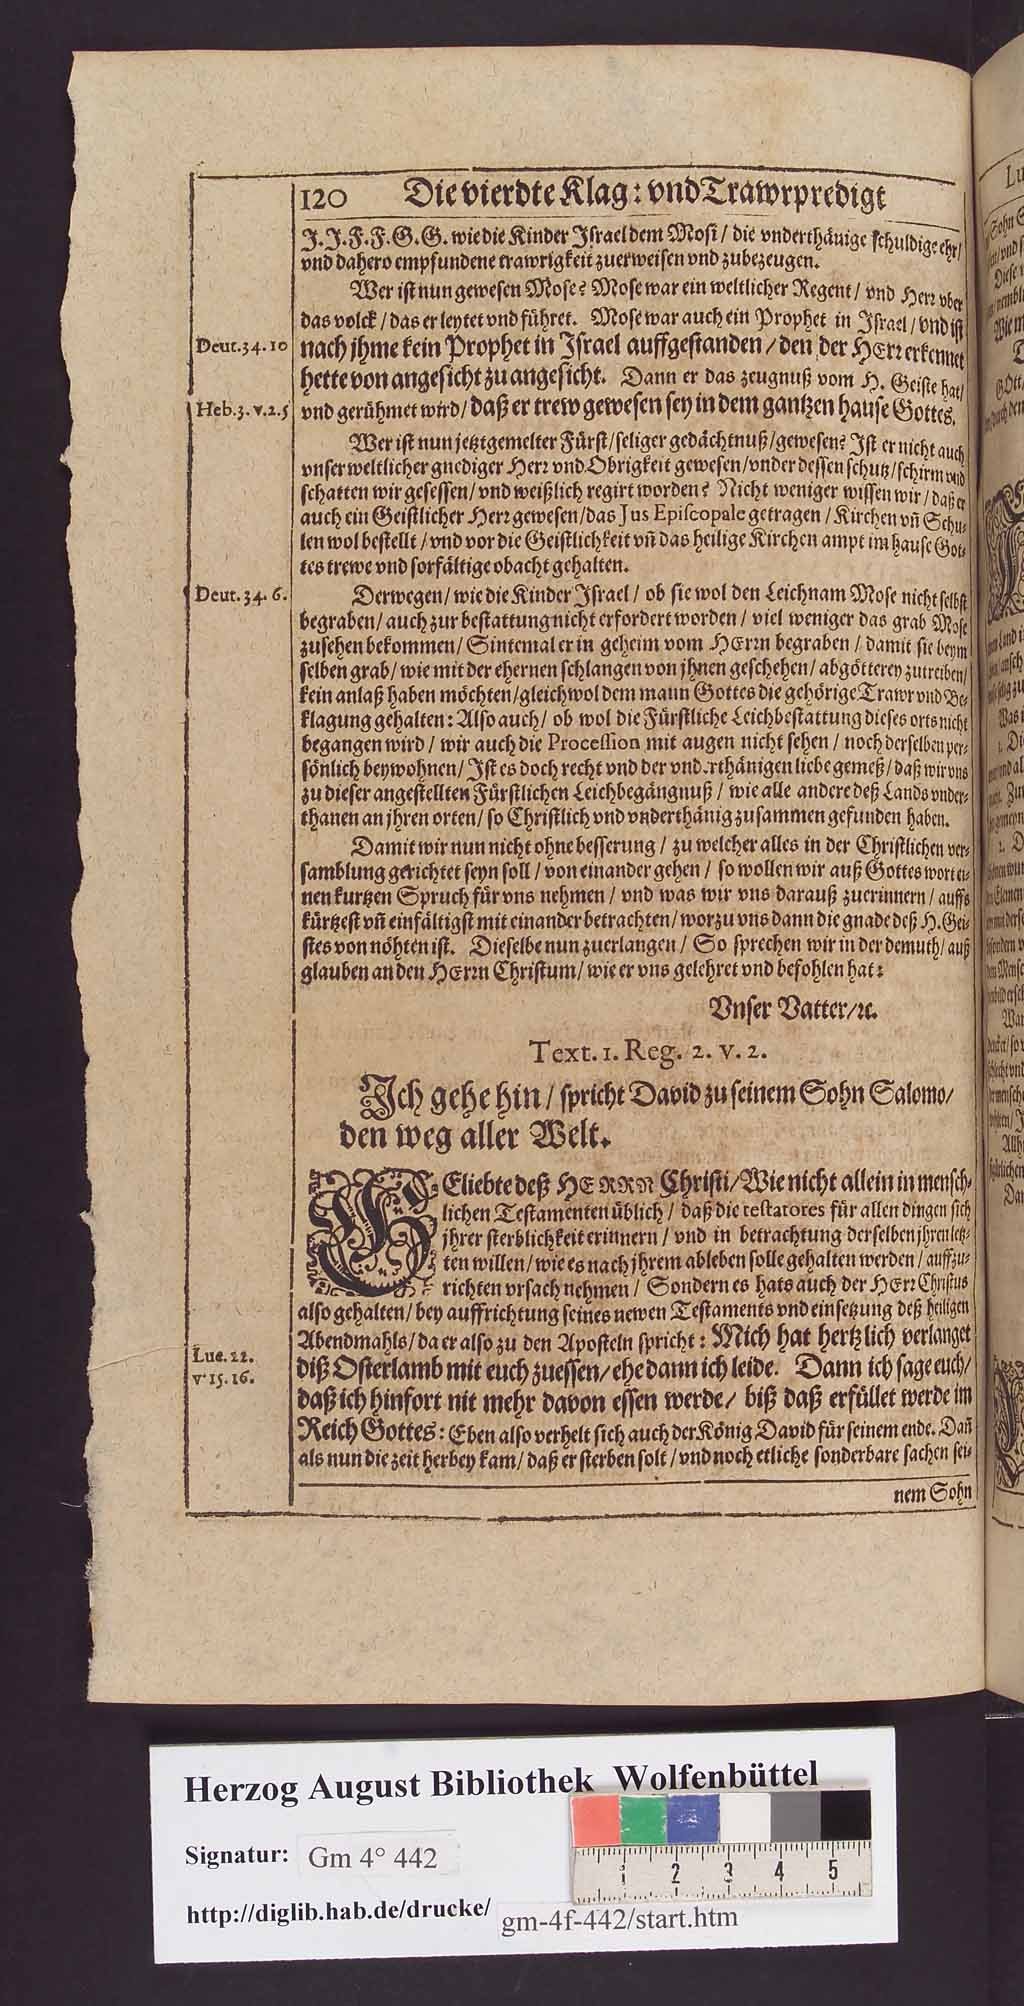 120 Die vierdte Klag: vnd Trawrpredigt
J. J. F. F. G. G. wie die Kinder Israel dem Mosi / die vnderthänige schuldige ehr /
vnd dahero empfundene trawrigkeit zuerweisen vnd zubezeugen.
Wer ist nun gewesen Mose? Mose war ein weltlicher Regent / vnd Herr vber
das volck / das er leytet vnd führet. Mose war auch ein Prophet in Israel / vnd ist
Deut. 34. 10
nach jhme kein Prophet in Israel auffgestanden / den der HErr erkennet
hette von angesicht zu angesicht. Dann er das zeugnuß vom H. Geiste hat /
Heb. 3. v. 2. 5
vnd gerühmet wird / daß er trew gewesen sey in dem gantzen hause Gottes.
Wer ist nun jetztgemelter Fürst / seliger gedächtnuß / gewesen? Ist er nicht auch
vnser weltlicher gnediger Herr vnd Obrigkeit gewesen / vnder dessen schutz / schirm vnd
schatten wir gesessen / vnd weißlich regirt worden? Nicht weniger wissen wir / daß er
auch ein Geistlicher Herr gewesen / das Jus Episcopale getragen / Kirchen vñ Schu-
len wol bestellt / vnd vor die Geistlichkeit vñ das heilige Kirchen ampt im hause Got-
tes trewe vnd sorfältige obacht gehalten.
Deut. 34. 6.
Derwegen / wie die Kinder Israel / ob sie wol den Leichnam Mose nicht selbst
begraben / auch zur bestattung nicht erfordert worden / viel weniger das grab Mose
zusehen bekommen / Sintemal er in geheim vom HErrn begraben / damit sie beym
selben grab / wie mit der ehernen schlangen von jhnen geschehen / abgötterey zutreiben /
kein anlaß haben möchten / gleichwol dem mann Gottes die gehörige Trawr vnd Be-
klagung gehalten: Also auch / ob wol die Fürstliche Leichbestattung dieses orts nicht
begangen wird / wir auch die Procession mit augen nicht sehen / noch derselben per-
sönlich beywohnen / Ist es doch recht vnd der vnderthänigen liebe gemeß / daß wir vns
zu dieser angestellten Fürstlichen Leichbegängnuß / wie alle andere deß Lands vnder-
thanen an jhren orten / so Christlich vnd vnderthänig zusammen gefunden haben.
Damit wir nun nicht ohne besserung / zu welcher alles in der Christlichen ver-
samblung gerichtet seyn soll / von einander gehen / so wollen wir auß Gottes wort ei-
nen kurtzen Spruch für vns nehmen / vnd was wir vns darauß zuerinnern / auffs
kürtzest vñ einfältigst mit einander betrachten / worzu vns dann die gnade deß H. Gei-
stes von nöhten ist. Dieselbe nun zuerlangen / So sprechen wir in der demuth / auß
glauben an den HErrn Christum / wie er vns gelehret vnd befohlen hat:
Vnser Vatter / ꝛc.
Text. 1. Reg. 2. v. 2.
Ich gehe hin / spricht David zu seinem Sohn Salomo /
den weg aller Welt.
GEliebte deß HERRN Christi / Wie nicht allein in mensch-
lichen Testamenten üblich / daß die testatores für allen dingen sich
jhrer sterblichkeit erinnern / vnd in betrachtung derselben jhren letz-
ten willen / wie es nach jhrem ableben solle gehalten werden / auffzu-
richten vrsach nehmen / Sondern es hats auch der HErr Christus
also gehalten / bey auffrichtung seines newen Testaments vnd einsetzung deß heiligen
Abendmahls / da er also zu den Aposteln spricht: Mich hat hertzlich verlanget
Luc. 22.
v. 15. 16.
diß Osterlamb mit euch zuessen / ehe dann ich leide. Dann ich sage euch /
daß ich hinfort nit mehr davon essen werde / biß daß erfüllet werde im
Reich Gottes: Eben also verhelt sich auch der König David für seinem ende. Dañ
als nun die zeit herbey kam / daß er sterben solt / vnd noch etliche sonderbare sachen sei-
nem Sohn
Herzog August Bibliothek Wolfenbüttel
Signatur: Gm 4° 442
http://diglib.hab.de/drucke/ gm-4f-442/start.htm
1 2 3 4 5